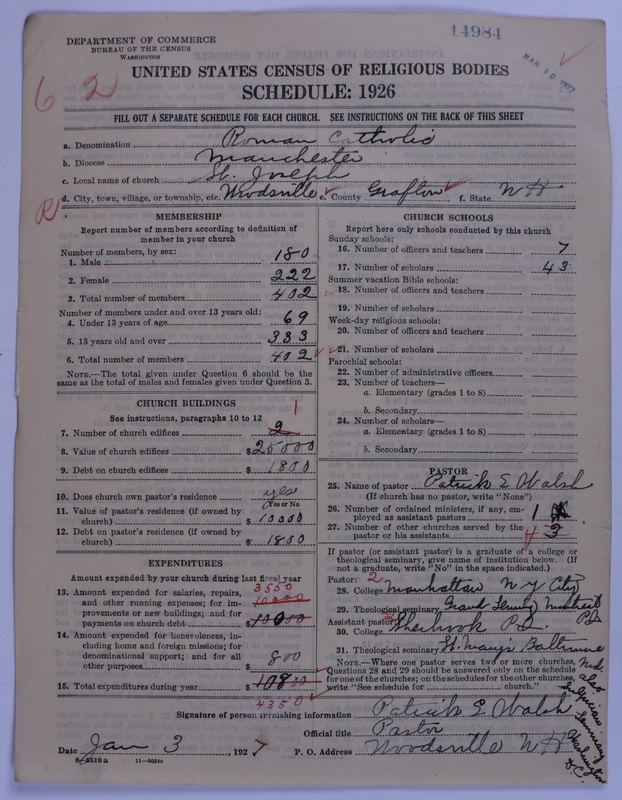 14984
DEPARTMENT OF COMMERCE
BUREAU OF THE CENSUS
WASHINGTON
MAR 10 1927
UNITED STATES CENSUS OF RELIGIOUS BODIES
SCHEDULE: 1926
6 2
FILL OUT A SEPARATE SCHEDULE FOR EACH CHURCH. SEE INSTRUCTIONS ON THE BACK OF THIS SHEET
a. Denomination Roman Catholic
b. Diocese Manchester
c. Local name of church St. Joseph
d. City, town, village, or township, etc. Woodsville e. County Grafton f. State N H
R
MEMBERSHIP
Report number of members according to definition of
member in your church
Number of members, by sex:
1. Male 180
2. Female 222
3. Total number of members 402
Number of members under and over 13 years old:
4. Under 13 years of age 69
5. 13 years old and over 333
6. Total number of members 402
NOTE.—The total given under Question 6 should be the
same as the total of males and females given under Question 3.
CHURCH BUILDINGS
See instructions, paragraphs 10 to 12
1
7. Number of church edifices 2
8. Value of church edifices $25000
9. Debt on church edifices $1800
10. Does church own pastor's residence yes
(Yes or No)
11. Value of pastor's residence (if owned by
church) $10000
12. Debt on pastor's residence (if owned by
church) $1800
EXPENDITURES
Amount expended by your church during last fiscal year
13. Amount expended for salaries, repairs,
and other running expenses; for im-
provements or new buildings; and for
payments on church debt $
3550
10000
10000
14. Amount expended for benevolences, in-
cluding home and foreign missions; for
denominational support; and for all
other purposes $800
15. Total expenditures during year $10800
4350
CHURCH SCHOOLS
Report here only schools conducted by this church
Sunday schools:
16. Number of officers and teachers 7
17. Number of scholars 43
Summer vacation Bible schools:
18. Number of officers and teachers
19. Number of scholars
Week-day religious schools:
20. Number of officers and teachers
21. Number of scholars
Parochial schools:
22. Number of administrative officers
23. Number of teachers—
a. Elementary (grades 1 to 8)
b. Secondary
24. Number of scholars—
a. Elementary (grades 1 to 8)
b. Secondary
PASTOR
25. Name of pastor Patrick E Walsh
(If church has no pastor, write "None")
26. Number of ordained ministers, if any, em-
ployed as assistant pastors 1
27. Number of other churches served by the
pastor or his assistants 4 3
If pastor (or assistant pastor) is a graduate of a college or
theological seminary, give name of institution below. (If
not a graduate, write "No" in the space indicated.)
Pastor: 2
28. College Manhattan N Y City
29. Theological seminary Grand Seminary Montreal
Assistant pastor: 2 P.Q.
30. College Sherbrook P.Q.
31. Theological seminary St. Mary's Baltimore
Md. also
Sulpician Seminary
Washington
D.C.
NOTE.—Where one pastor serves two or more churches,
Questions 28 and 29 should be answered only on the schedule
for one of the churches; on the schedules for the other churches,
write "See schedule for church."
Signature of person furnishing information Patrick E Walsh
Official title Pastor
Date Jan 3, 1927 P. O. Address Woodsville N H
8—5318a 11—9034a